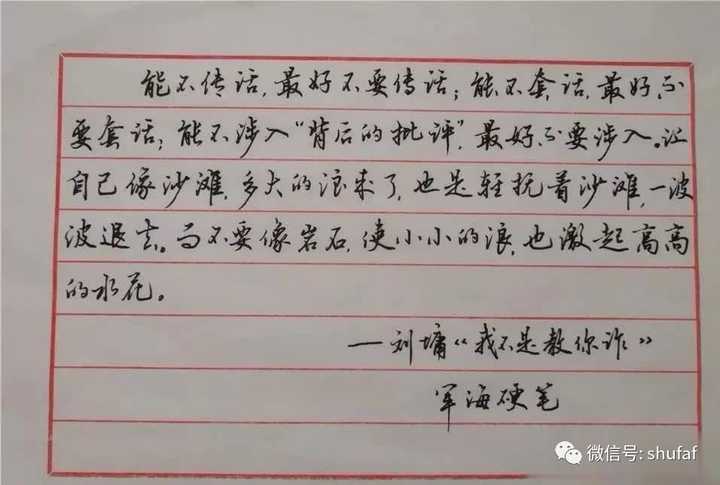 能不传话,最好不要传话;能不套话,最好不
要套话;能不涉入“背后的批评”,最好不要涉入。让
自己像沙滩,多大的浪来了,也是轻抚着沙滩,一波
波退去。而不要像岩石,使小小的浪,也激起高高
的水花。
—刘墉《我不是教你诈》
军海硬笔
微信号: shufaf